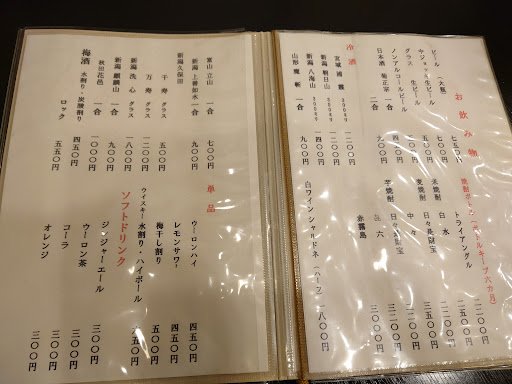 お飲み物
ビール（大瓶） 七五〇円
中ジョッキ生ビール 七〇〇円
グラス生ビール 五〇〇円
ノンアルコールビール 五〇〇円
日本酒 菊正宗 一合
二合 九〇〇円
冷酒
新潟 朝日山 300ml
新潟 八海山 300ml
山形 一合 九〇〇円
焼酎ボトル
トライアングル
米焼酎 白水
麦焼酎 日々是財宝
中々
芋焼酎 日々是財宝
六
赤霧島
白ワインシャルドネ（ハーフ） 一八〇〇円
富山 立山 一合 七〇〇円
新潟 上善如水 一合 九〇〇円
新潟 久保田
千寿 グラス 五〇〇円
万寿 グラス 一二〇〇円
新潟 洗心 グラス 一八〇〇円
新潟 麒麟山 一合 九〇〇円
秋田 花邑 一合 一〇〇〇円
梅酒 水割り・炭酸割り 四五〇円
ロック 五五〇円
単品
ウーロンハイ 四五〇円
レモンサワー 四五〇円
梅干し割り 五〇〇円
ウイスキー 水割り・ハイボール
ソフトドリンク
ジンジャーエール 三〇〇円
ウーロン茶 三〇〇円
コーラ 三〇〇円
オレンジ 三〇〇円